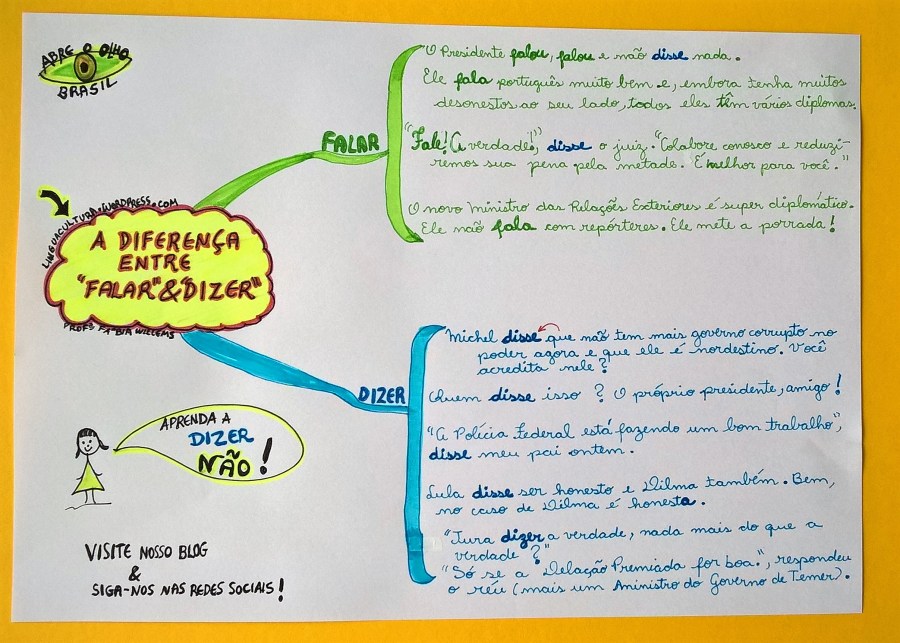 ABRE O OLHO
BRASIL
LINGUACULTURA.WORDPRESS.COM
A DIFERENÇA
ENTRE
"FALAR" & "DIZER"
PROFª FABIA WILLEMS
FALAR
O Presidente falou, falou e não disse nada.
Ele fala português muito bem e, embora tenha muitos
desonestos ao seu lado, todos eles têm vários diplomas.
"Fale! (A verdade!)", disse o juiz. "Colabore conosco e reduzi-
remos sua pena pela metade. É melhor para você."
O novo Ministro das Relações Exteriores é super diplomático.
Ele não fala com repórteres. Ele mete a porrada!
DIZER
Michel disse que não tem mais governo corrupto no
poder agora e que ele é nordestino. Você
acredita nele?
Quem disse isso? O próprio presidente, amigo!
"A Polícia Federal está fazendo um bom trabalho",
disse meu pai ontem.
Lula disse ser honesto e Dilma também. Bem,
no caso de Dilma é honesta.
"Jura dizer a verdade, nada mais do que a
verdade?"
"Só se a Delação Premiada for boa.", respondeu
o réu (mais um Aministro do Governo de Temer).
APRENDA A
DIZER
NÃO!
VISITE NOSSO BLOG
&
SIGA-NOS NAS REDES SOCIAIS!